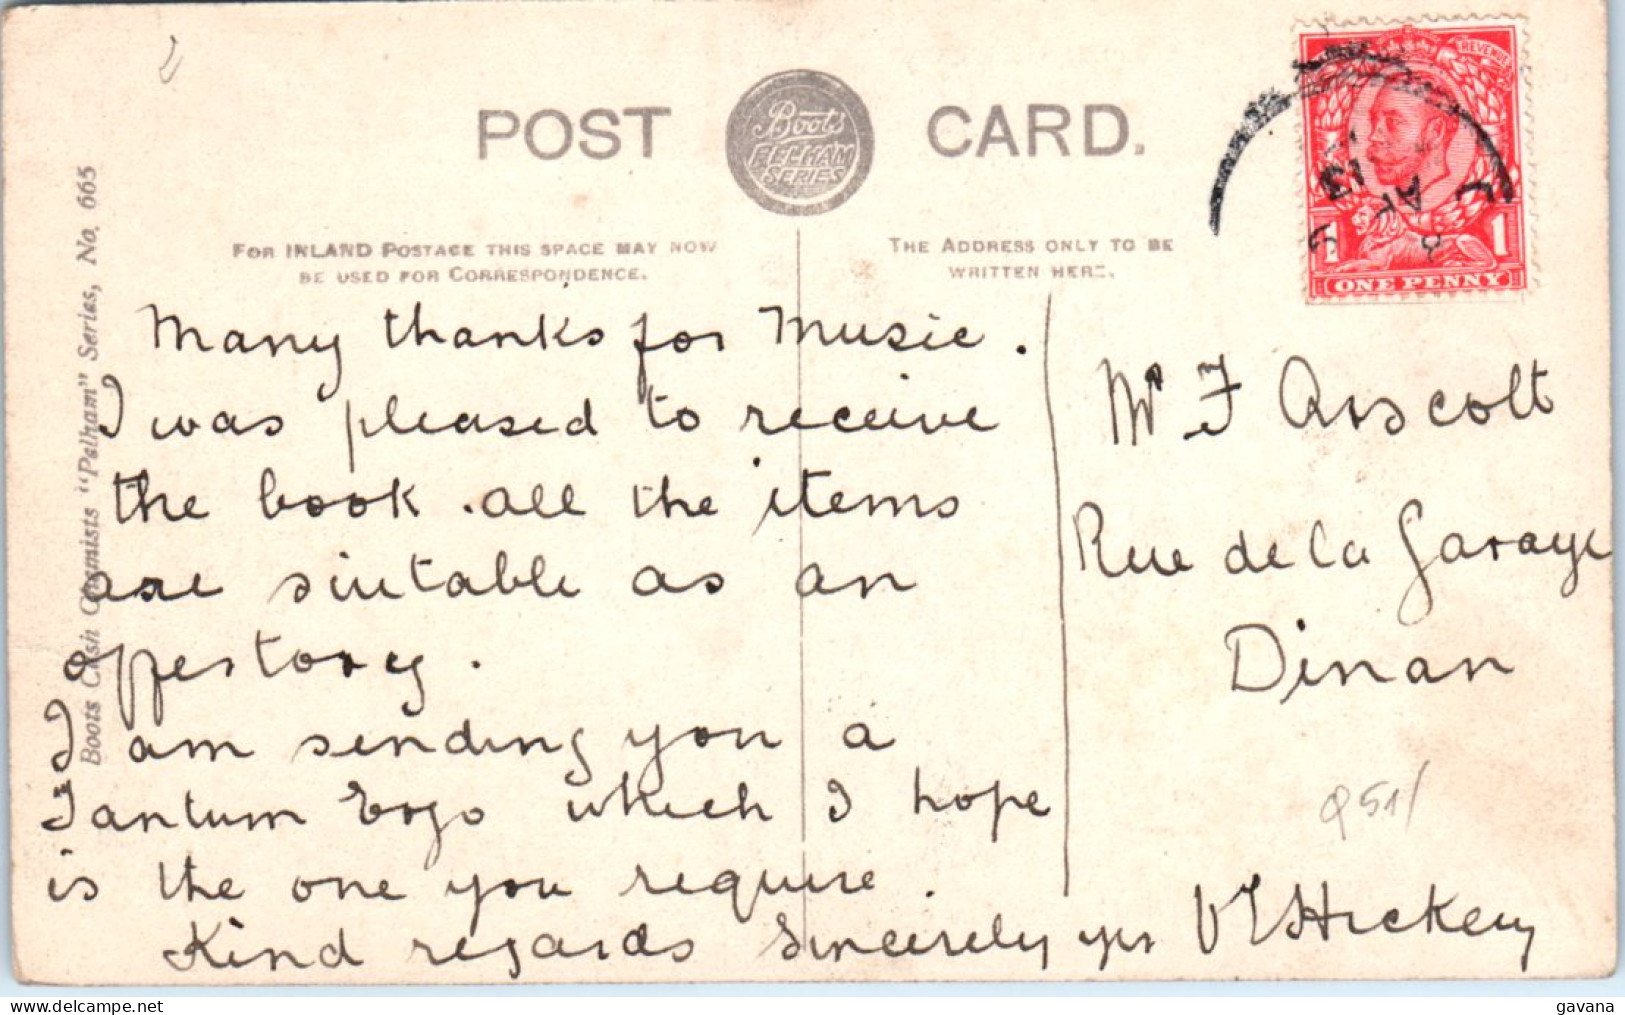 POST CARD.
Boots
PELHAM
SERIES
REVENUE
13
1 1
ONE PENNY
FOR INLAND POSTAGE THIS SPACE MAY NOW
BE USED FOR CORRESPONDENCE.
THE ADDRESS ONLY TO BE
WRITTEN HERE.
Boots Cash Chemists "Pelham" Series, No. 665
Many thanks for Music.
I was pleased to receive
the book. all the items
are siutable as an
offertory.
I am sending you a
Tantum Ergo which I hope
is the one you require.
Kind regards Sincerely yrs V E Hickey
Mr F Arscott
Rue de la Garaye
Dinan
gavana